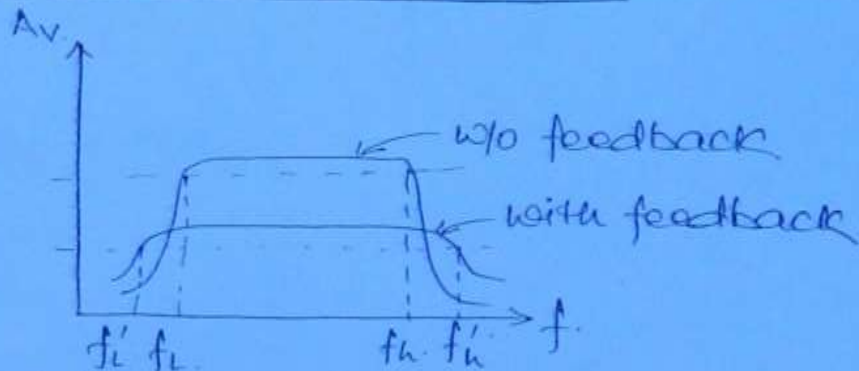 Av.
w/o feedback
with feedback
fL' fL. fh. fh' f.